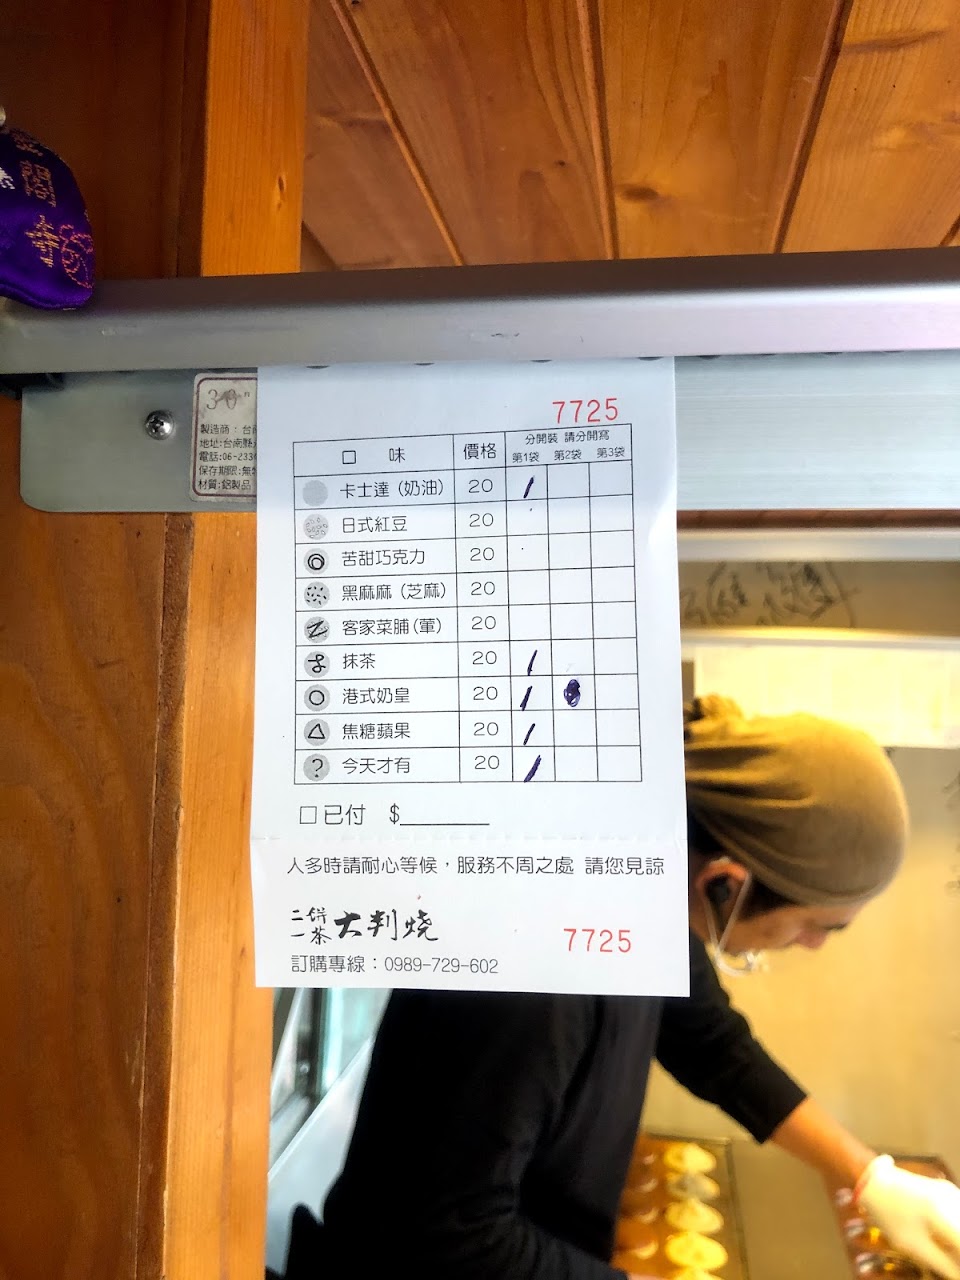 30"
製造商：台南
地址:台南縣
電話:06-233
保存期限:無
材質:鋁製品
7725
口 味 價格 分開裝 請分開寫
第1袋 第2袋 第3袋
卡士達（奶油） 20 /
日式紅豆 20
苦甜巧克力 20
黑麻麻（芝麻） 20
客家菜脯(葷) 20
抹茶 20 /
港式奶皇 20 /
焦糖蘋果 20 /
? 今天才有 20 /
□已付 $________
人多時請耐心等候，服務不周之處 請您見諒
二餅一茶 大判燒
7725
訂購專線：0989-729-602